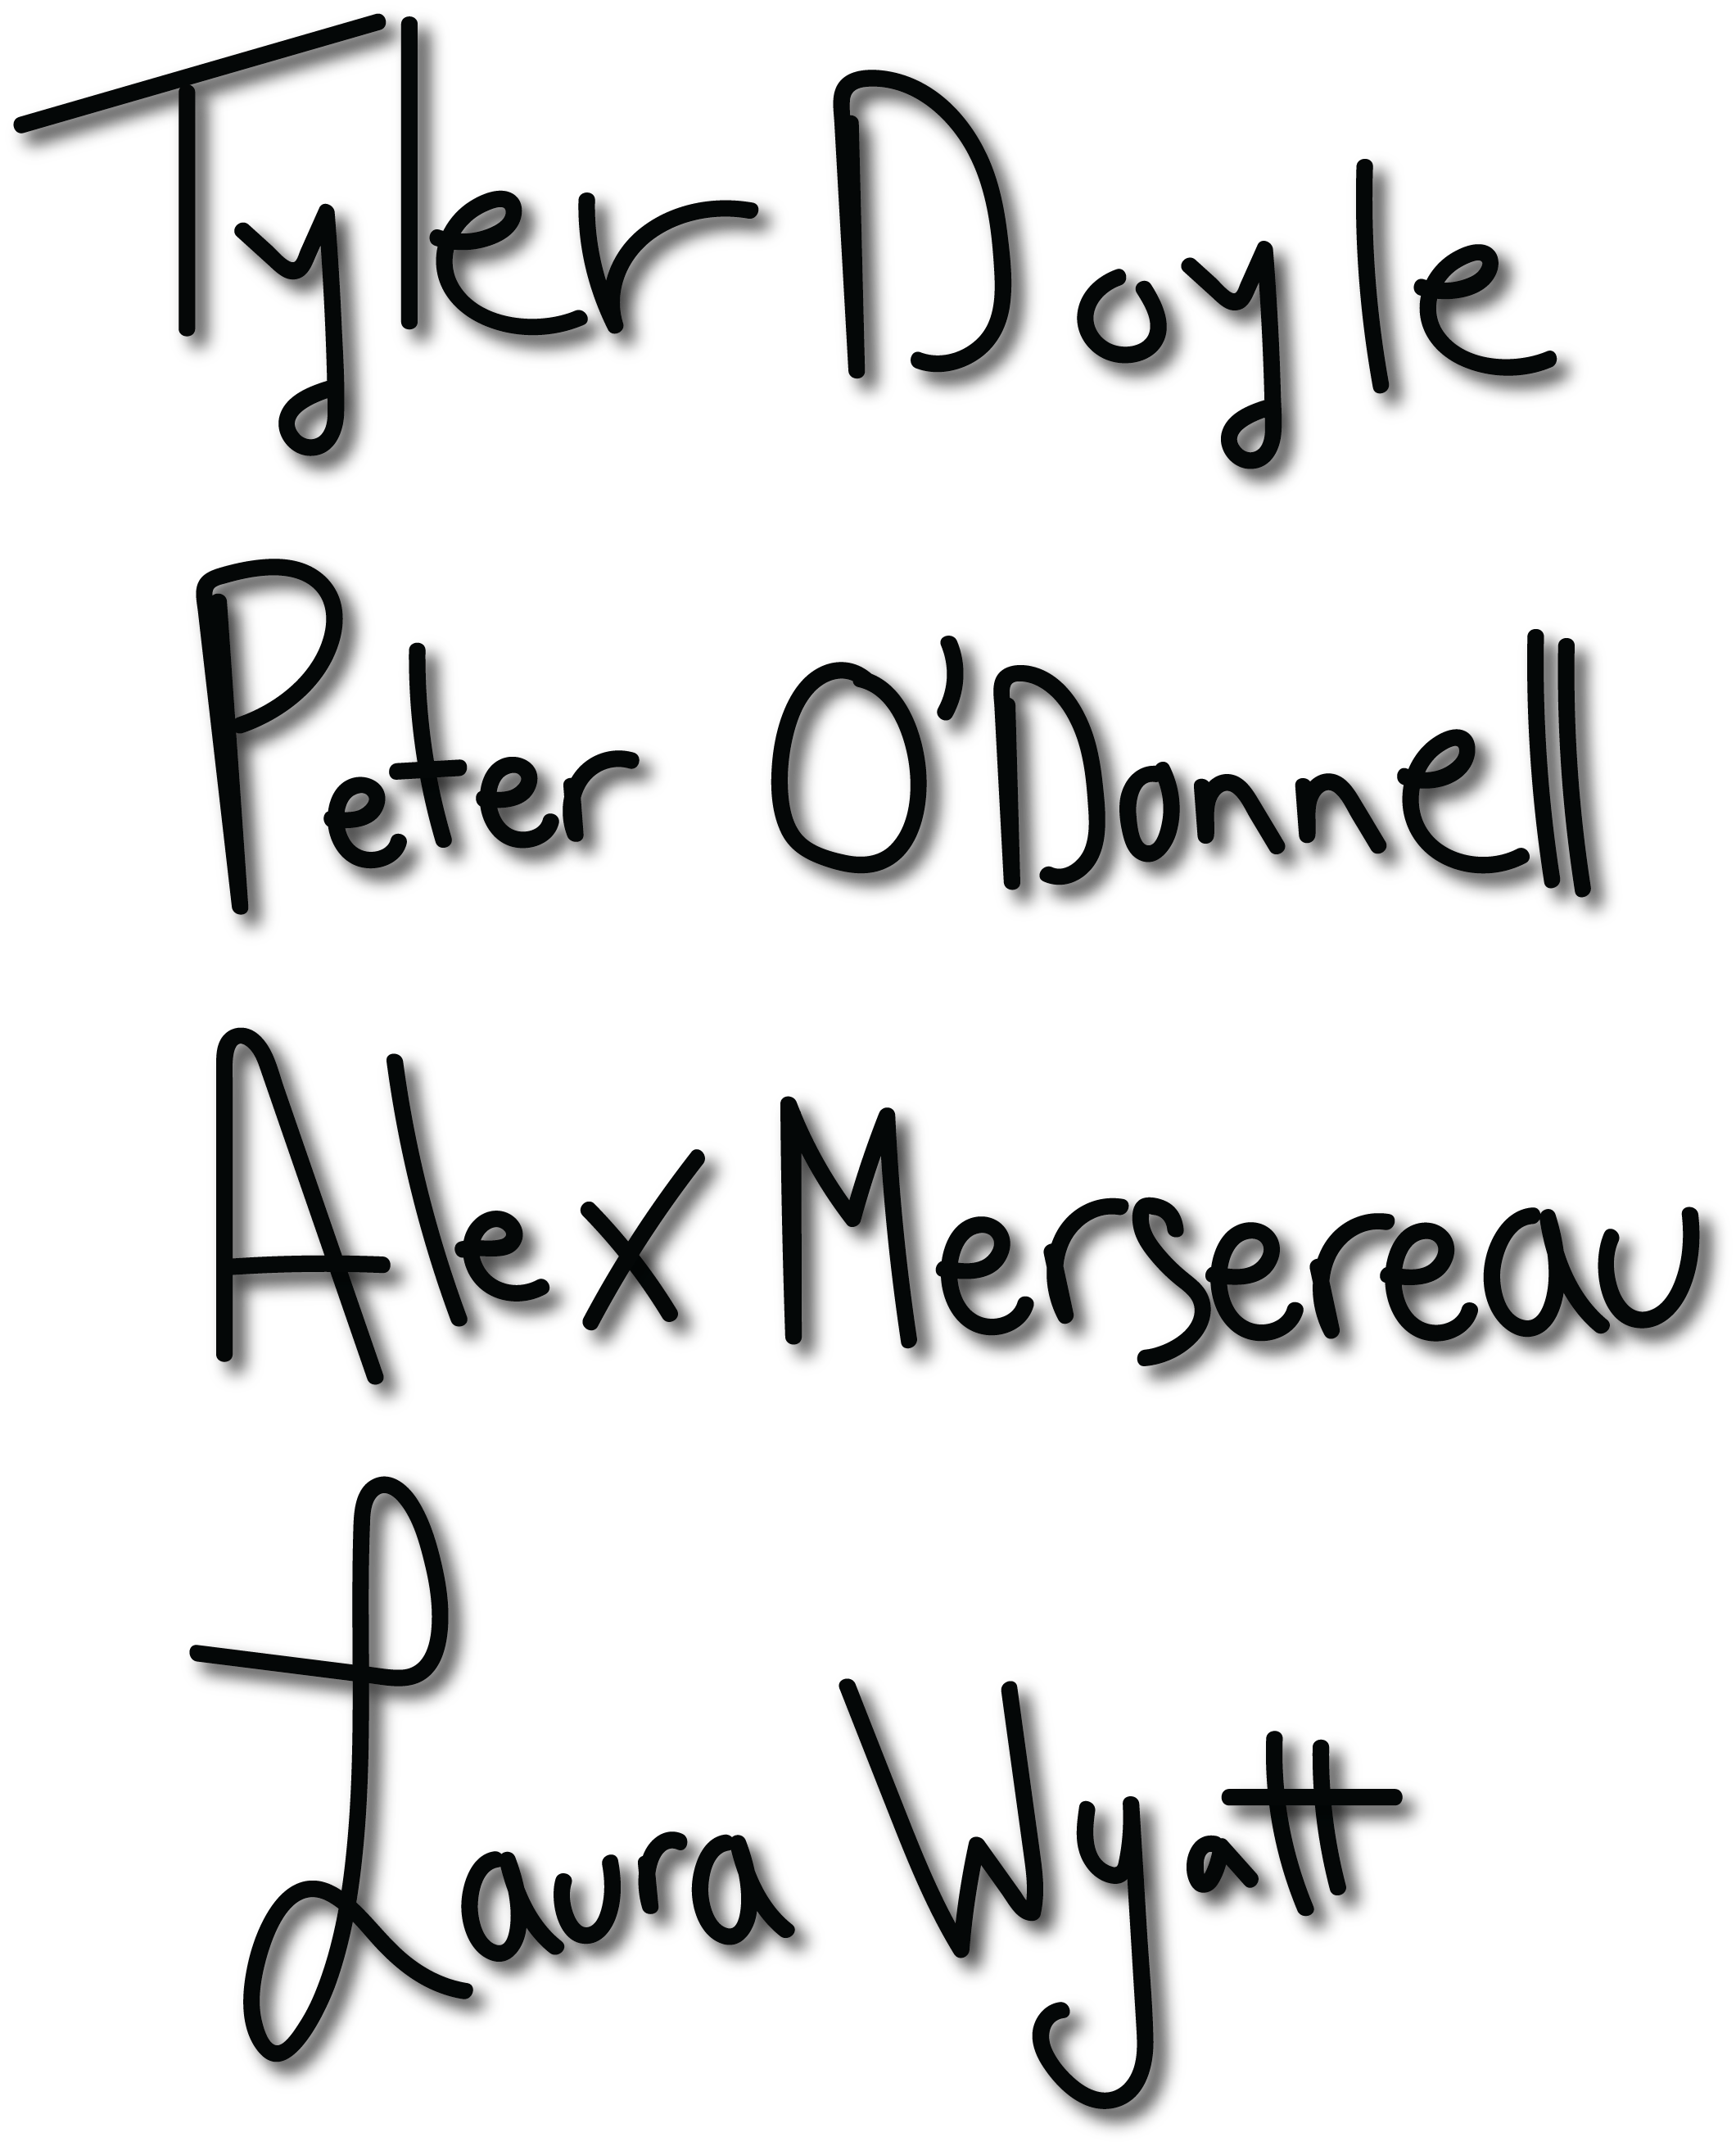 Tyler Doyle
Peter O'Donnell
Alex Mersereau
Laura Wyatt